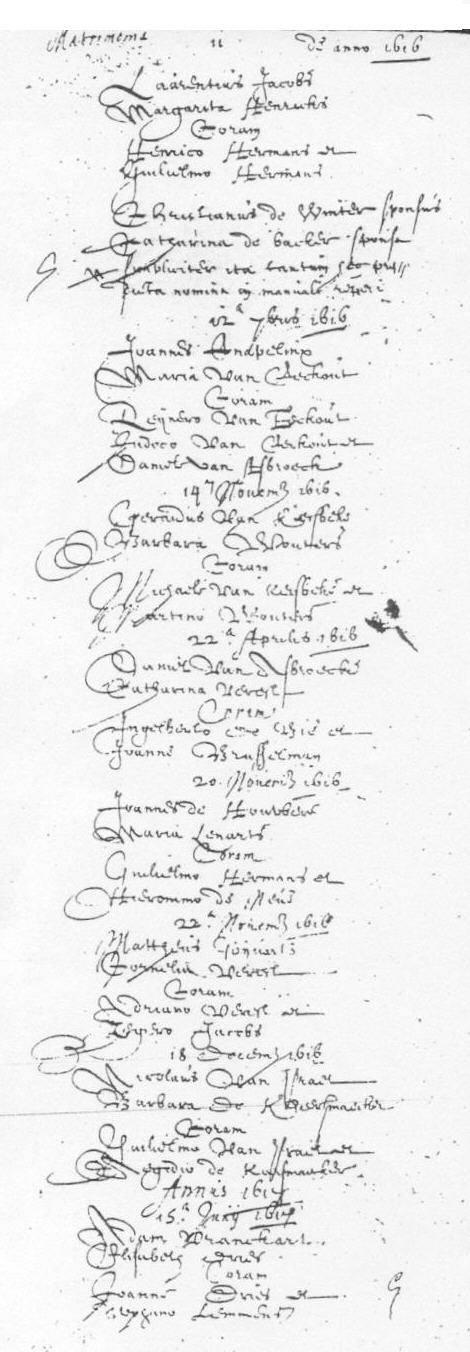 Matrimonia 11 de anno 1616
Laurentius Jacobs
Margarita Henricks
Coram
Henrico Hermans et
Guilielmo Hermans.
Christianus de Winter sponsus
Catharina de backer sponsa
simpliciter ita tantum
nomina in manuali reperi
12ª 7bris 1616
Joannes
Maria Van Eeckout
Coram
Reijnero Van Eeckout
Judoco Van Eeckout et
Daniel van Asbroeck
14ª Novemb 1616.
Van Kersbeke
Barbara Wouters
Coram
Michaele Van Kersbeke et
Martino Wouters
22ª Aprilis 1616
Daniel Van Asbroeck
Catharina Verest
Coram
Ingelberto et
Joanne Brusselman
20. Novemb 1616
Joannes de
Maria Lenarts
Coram
Guilielmo Hermans et
Hieronimo de Meus
22ª Novemb 1616
Mattheus
Cornelia Verest
Coram
Adriano Verest et
Jacobs
18 Decemb 1616
Nicolaus Van Israel
Barbara De
Coram
Guilielmo Van Israel et
Egidio de
Annus 1617
15ª Junij 1617
Adam Vranckart.
Elisabeth Dries
Coram
Joanne Dries et
Stephano Lemmens